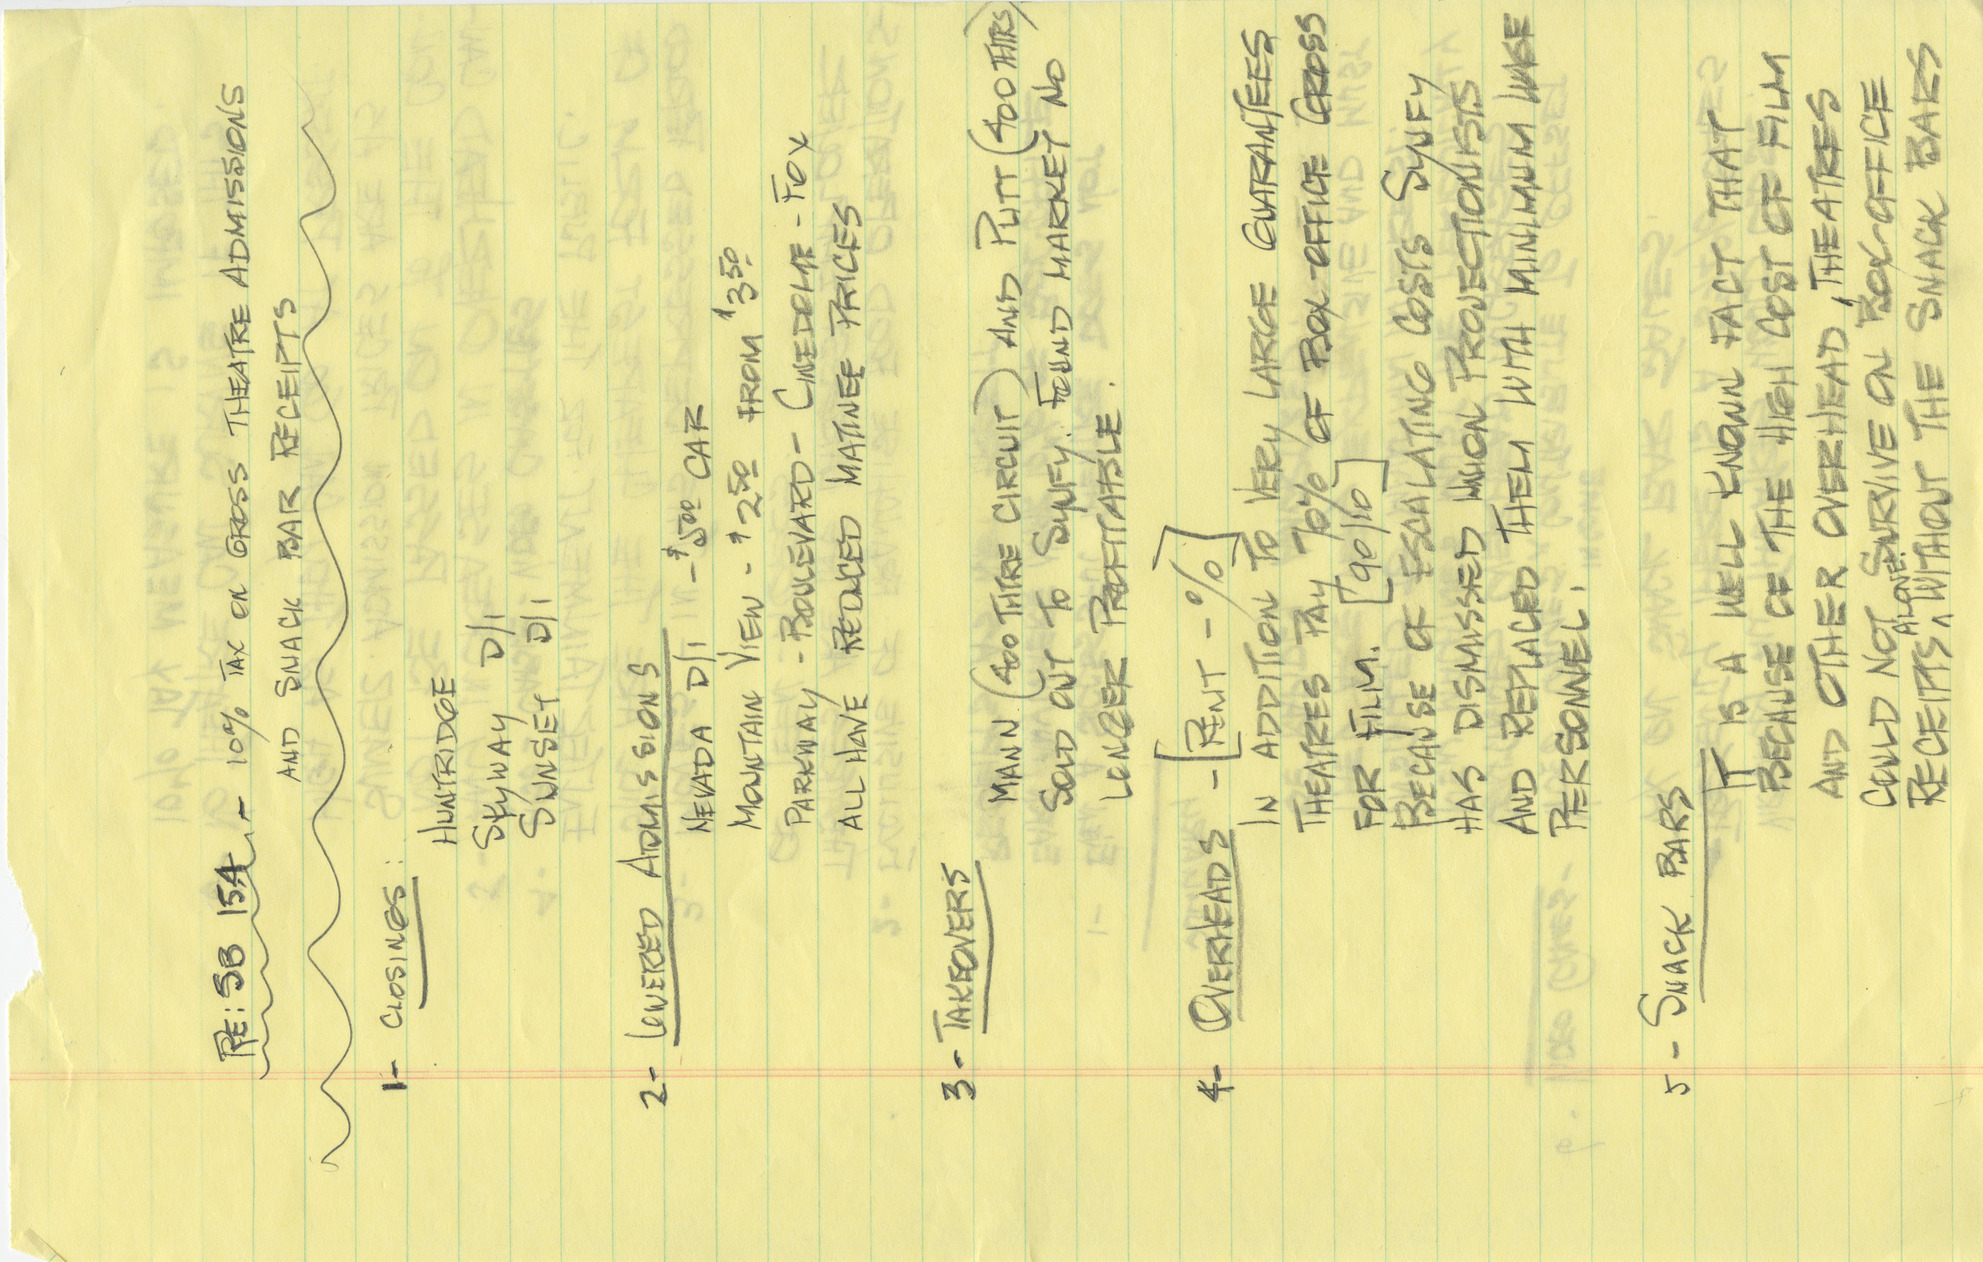 RE: SB 154 - 10% TAX ON GROSS THEATRE ADMISSIONS
AND SNACK BAR RECEIPTS
1- CLOSINGS:
HUNTRIDGE
SKYWAY D/I
SUNSET D/I
2- LOWERED ADMISSIONS
NEVADA D/I - $5.00 CAR
MOUNTAIN VIEW - $2.50 FROM $3.50
PARKWAY - BOULEVARD - CINEDOME - FOX
ALL HAVE REDUCED MATINEE PRICES
3- TAKEOVERS
MANN (400 THTRE CIRCUIT) AND PLITT (400 THTRS)
SOLD OUT TO SYUFY. FOUND MARKET NO
LONGER PROFITABLE.
4- OVERHEADS - [RENT - %]
IN ADDITION TO VERY LARGE GUARANTEES
THEATRES PAY 70% OF BOX-OFFICE GROSS
FOR FILM. [90/10]
BECAUSE OF ESCALATING COSTS SYUFY
HAS DISMISSED UNION PROJECTIONISTS
AND REPLACED THEM WITH MINIMUM WAGE
PERSONNEL.
5- SNACK BARS
IT IS A WELL KNOWN FACT THAT
BECAUSE OF THE HIGH COST OF FILM
AND OTHER OVERHEAD, THEATRES
COULD NOT SURVIVE ON BOX-OFFICE
RECEIPTS ALONE WITHOUT THE SNACK BARS